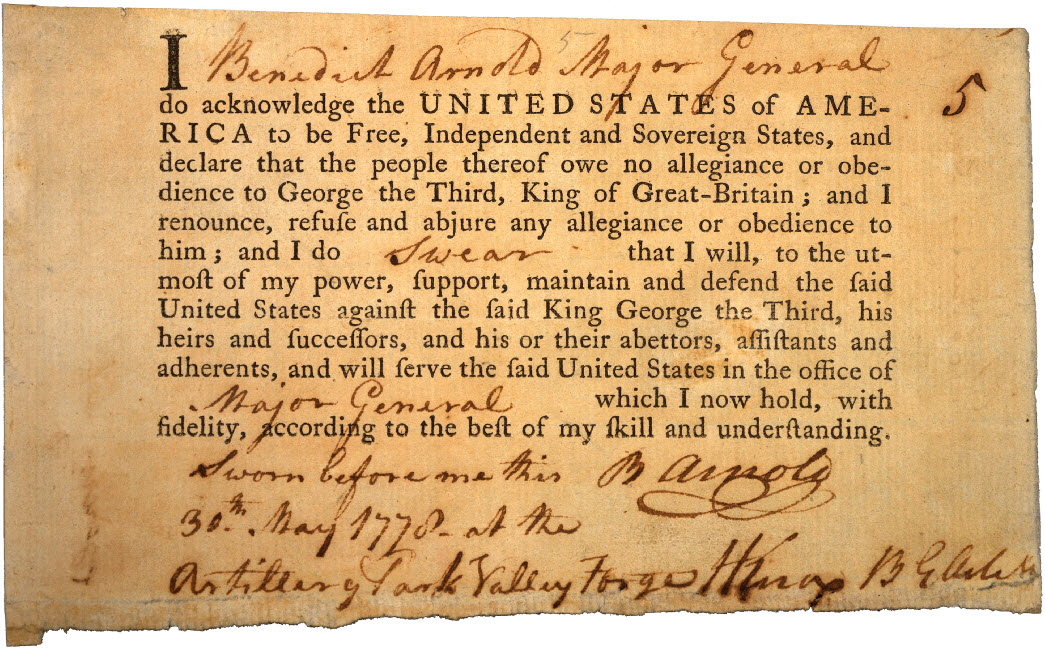 5
I Benedict Arnold Major General
5
do acknowledge the UNITED STATES of AME-
RICA to be Free, Independent and Sovereign States, and
declare that the people thereof owe no allegiance or obe-
dience to George the Third, King of Great-Britain; and I
renounce, refuſe and abjure any allegiance or obedience to
him; and I do Swear that I will, to the ut-
moſt of my power, ſupport, maintain and defend the ſaid
United States againſt the ſaid King George the Third, his
heirs and ſucceſſors, and his or their abettors, aſſiſtants and
adherents, and will ſerve the ſaid United States in the office of
Major General which I now hold, with
fidelity, according to the beſt of my ſkill and underſtanding.
Sworn before me this B Arnold
30th. May 1778 - at the
Artillery Park Valley Forge HKnox B G Artil